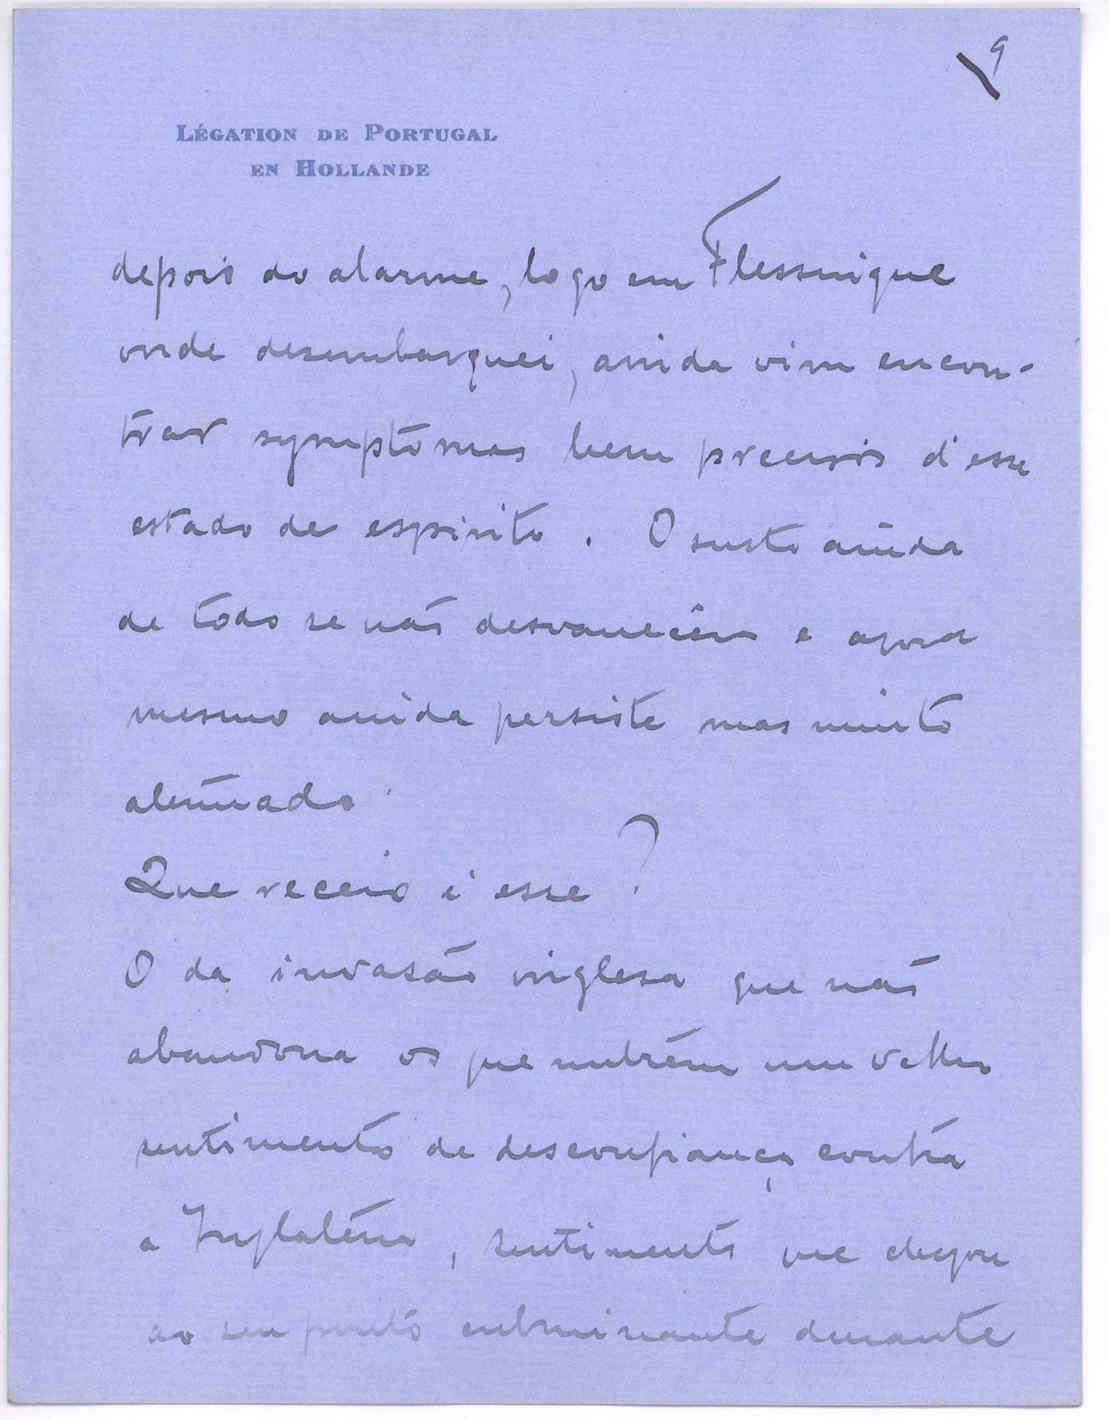 9
LÉGATION DE PORTUGAL
EN HOLLANDE
depois do alarme, logo em Flessingue
onde desembarquei, ainda vim encon-
trar symptomas bem precisos d'esse
estado de espirito. O susto ainda
de todo se não desvanecêra e agora
mesmo ainda persiste mas muito
atenuado.
Que receio é esse?
O da invasão inglesa que não
abandona os que nutrem um velho
sentimento de desconfiança contra
a Inglaterra, sentimento que chegou
ao seu ponto culminante durante